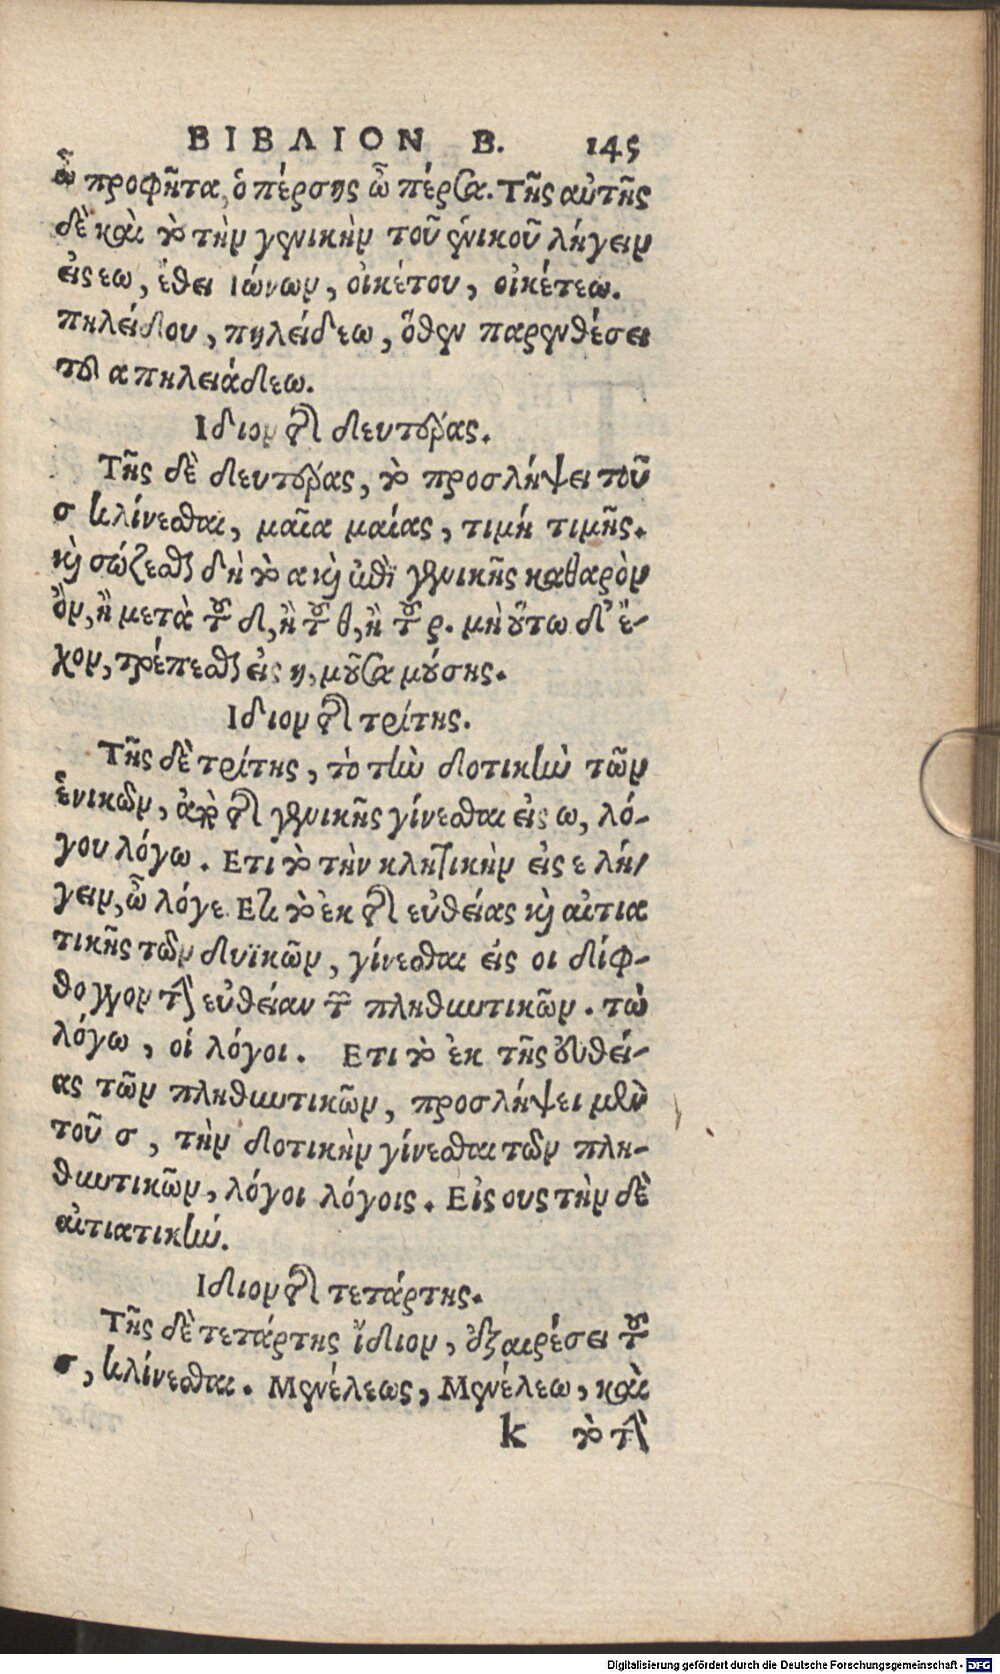 ΒΙΒΛΙΟΝ Β. 145
ὦ προφῆτα, ὁ πέρσης ὦ πέρσα. Τῆς αὐτῆς
δὲ καὶ τὸ τὴν γενικὴν τοῦ ἑνικοῦ λήγειν
εἰς εω, ἔθει Ιώνων, οἰκέτου, οἰκέτεω.
πηλείδου, πηλείδεω, ὅθεν παρενθέσει
τοῦ α πηλειάδεω.
Ιδιον τῆς δευτέρας.
Τῆς δὲ δευτέρας, τὸ προσλήψει τοῦ
σ κλίνεσθαι, μαῖα μαίας, τιμή τιμῆς.
καὶ σώζεσθαι δὴ τὸ α καὶ ἐπὶ γενικῆς καθαρὸν
ὂν, ἢ μετὰ τοῦ δ, ἢ τοῦ θ, ἢ τοῦ ρ. μὴ οὕτω δ' ἔ-
χον, τρέπεσθαι εἰς η, μοῦσα μούσης.
Ιδιον τῆς τρίτης.
Τῆς δὲ τρίτης, τὸ τὴν δοτικὴν τῶν
ἑνικῶν, ἀπὸ τῆς γενικῆς γίνεσθαι εἰς ω, λό-
γου λόγω. Ετι τὸ τὴν κλητικὴν εἰς ε λή-
γειν, ὦ λόγε. Ετι τὸ ἐκ τῆς εὐθείας καὶ αἰτια
τικῆς τῶν δυϊκῶν, γίνεσθαι εἰς οι δίφ-
θογγον τὴν εὐθείαν τῶν πληθυντικῶν. τὼ
λόγω, οἱ λόγοι. Ετι τὸ ἐκ τῆς εὐθεί-
ας τῶν πληθυντικῶν, προσλήψει μὲν
τοῦ σ, τὴν δοτικὴν γίνεσθαι τῶν πλη-
θυντικῶν, λόγοι λόγοις. Εἰς ους τὴν δὲ
αἰτιατικήν.
Ιδιον τῆς τετάρτης.
Τῆς δὲ τετάρτης ἴδιον, ἐξαιρέσει τοῦ
σ, κλίνεσθαι. Μενέλεως, Μενέλεω, καὶ
k τὸ τὴν